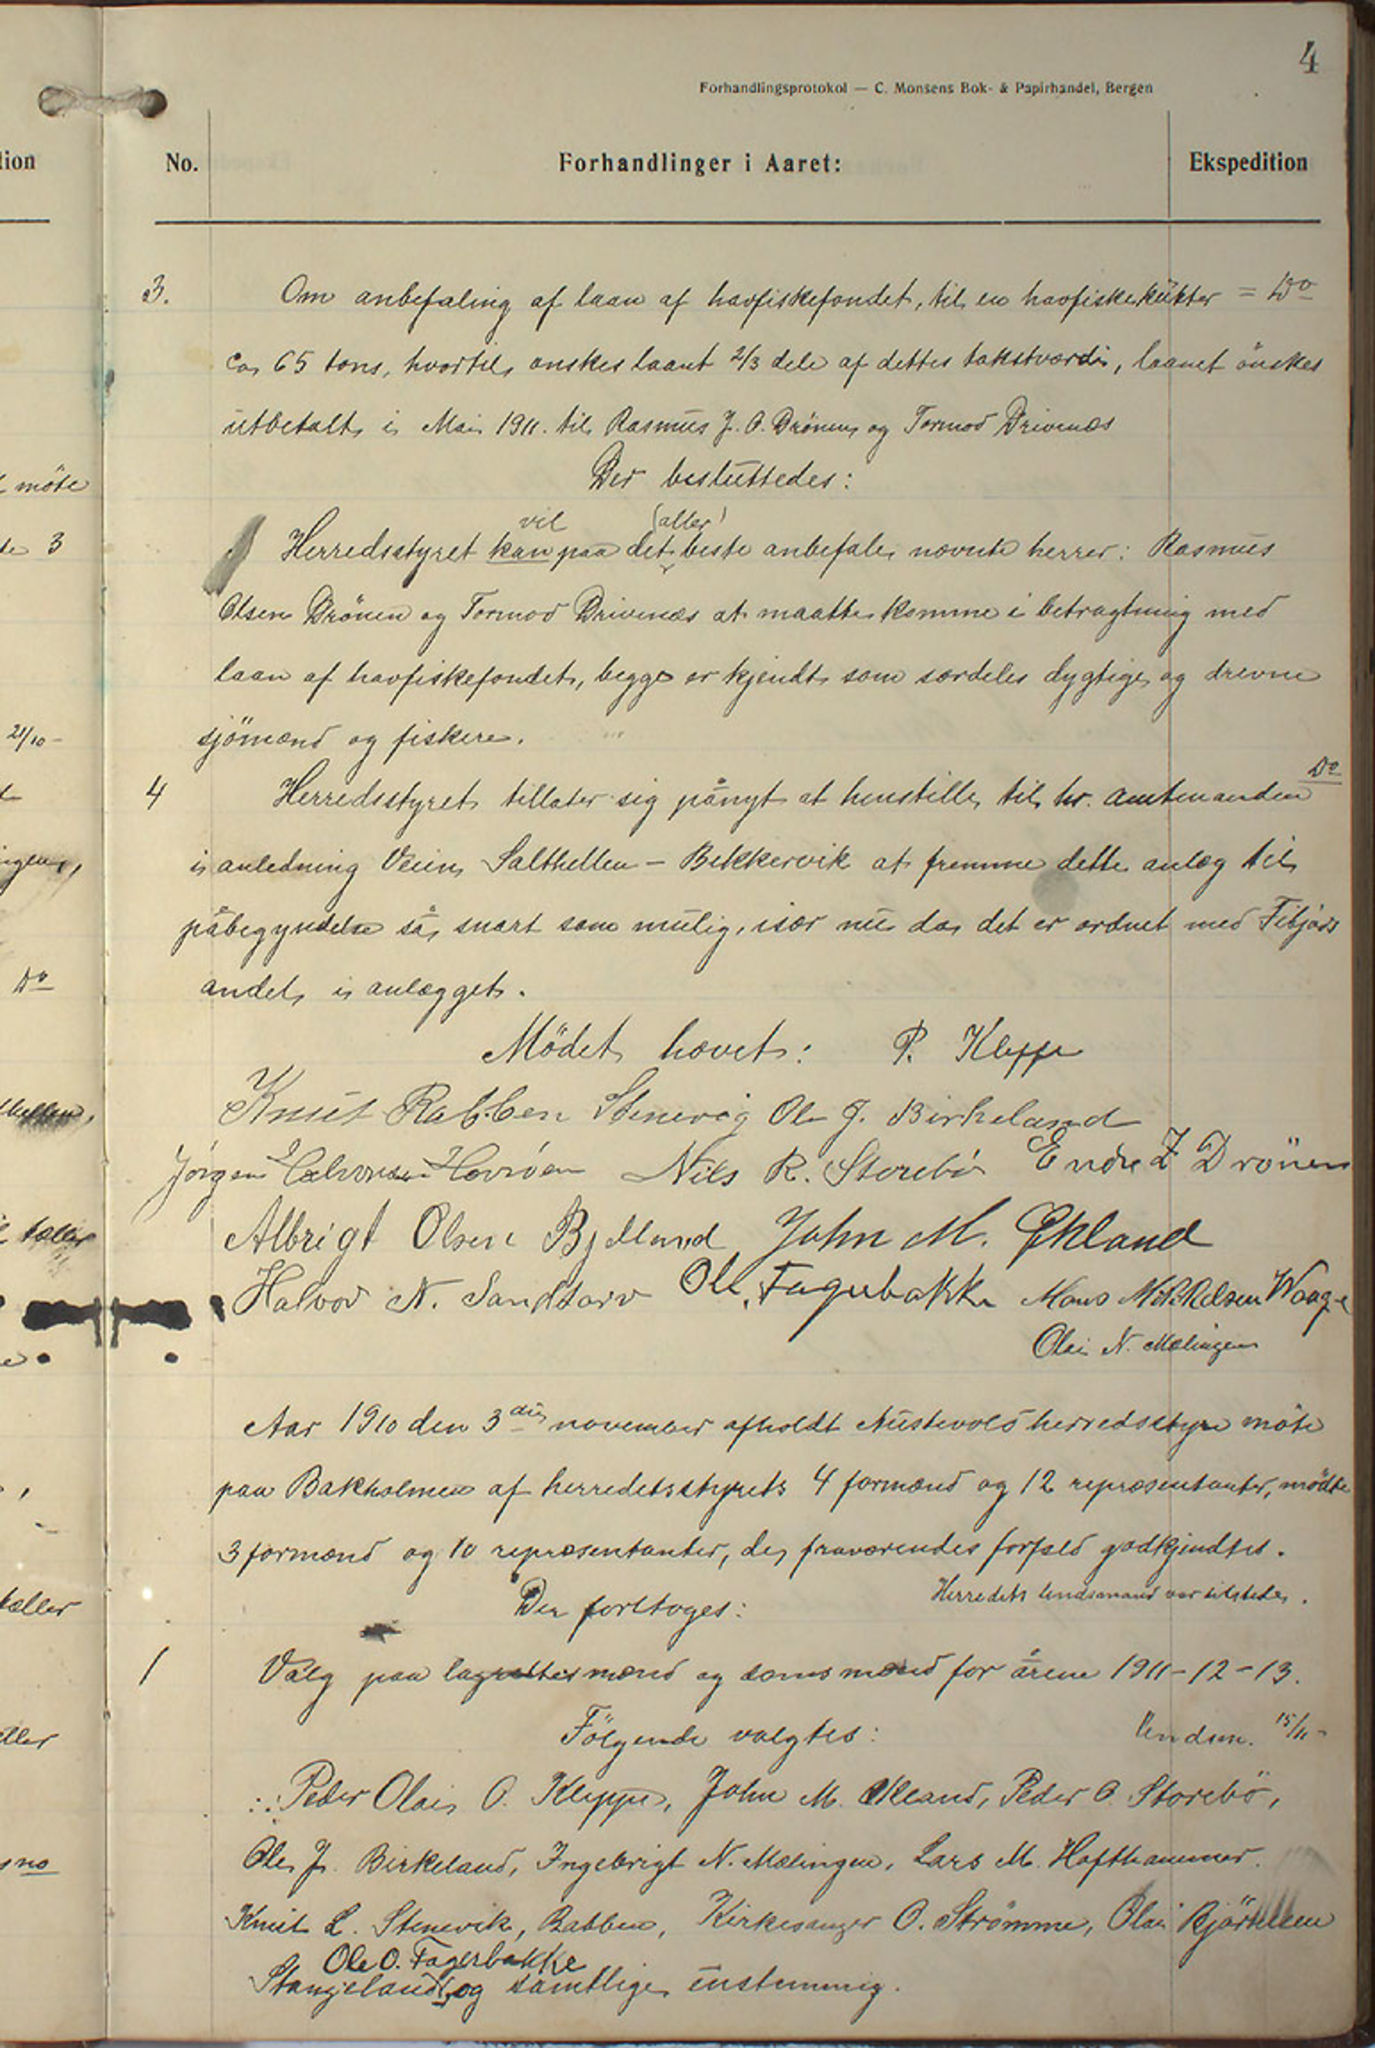 4
Forhandlingsprotokol — C. Monsens Bok- & Papirhandel, Bergen
No. Forhandlinger i Aaret: Ekspedition
3. Om anbefaling af laan af havfiskefondet, til en havfiskerkutter = Do
ca 65 tons, hvortil ønskes laant 2/3 dele af dettes takstværdi, laanet önskes
utbetalt i Mai 1911. til Rasmus J. O. Drönen og Tormod Drivenæs
Der besluttedes:
vil (aller)
Herredsstyret kan paa det beste anbefale nævnte herrer: Rasmus
Olsen Drönen og Tormod Drivenæs at maatte komme i betragtning med
laan af havfiskefondet, begge er kjendt som særdeles dygtige og drevne
sjömænd og fiskere.
4 Herredsstyret tillater sig pånyt at henstille til hr. amtmanden Do
i anledning Veien Salthellen - Bekkervik at fremme dette anlæg til
påbegyndelse så snart som mulig, især nu da det er ordnet med Fitjars
andel i anlægget.
Mödet hævet: P. Kleppe
Knut Rabben Stenevig Ole J. Birkeland
Jörgen Halvorsen Hovröen Nils R. Storebö Endre Z Drönen
Albrigt Olsen Bjelland John M. Økland
Halvor N. Sandtorv Ole Fagerbakke Mons Mikkelsen Waage
Olai N. Mælingen
Aar 1910 den 3die november afholdt Austevold herredsstyre möte
paa Bakholmen af herredetsstyrets 4 formænd og 12 repræsentanter, mödte
3 formænd og 10 repræsentanter, de fraværendes forfald godkjendtes.
Herredets lendsmand var tilstede.
Der foretoges:
1 Valg paa lagrettesmænd og domsmænd for årene 1911-12-13.
Fölgende valgtes: Lendsm. 15/11-
Peder Olai O. Kleppe, John M. Økland, Peder O. Storebö,
Ole J. Birkeland, Ingebrigt N. Mælingen, Lars M. Hofthammer.
Knut L. Stenevik, Rabben, Kirkesanger O. Strömme, Olai Björnsen
Ole O. Fagerbakke
Stangeland, og samtlige enstemmig.